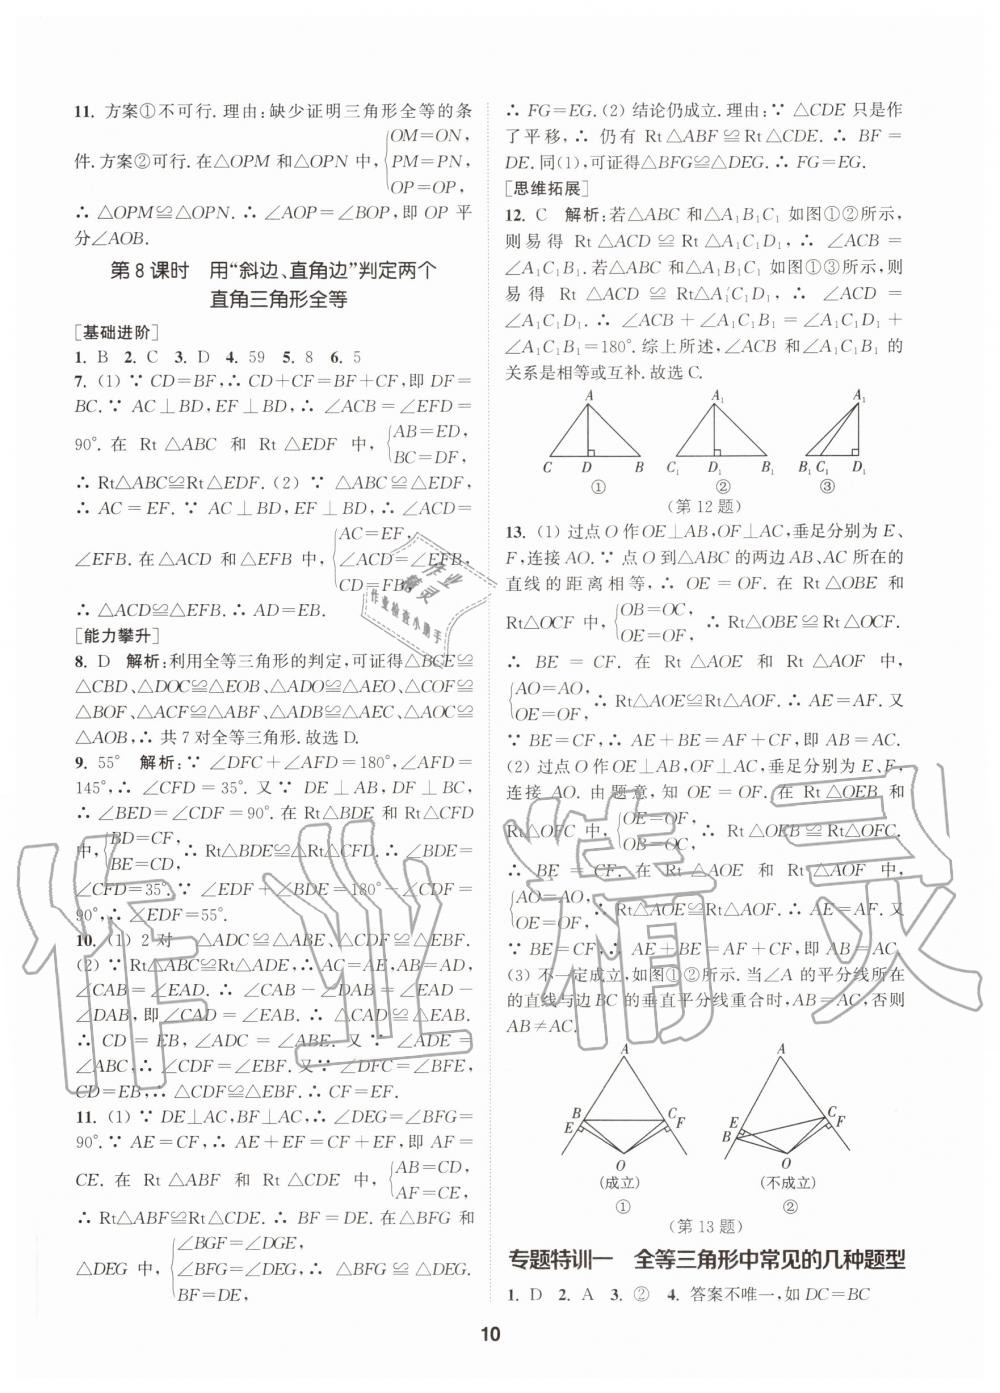 11. 方案①不可行. 理由:缺少证明三角形全等的条
件. 方案②可行. 在△OPM 和△OPN 中, {OM=ON,
PM=PN,
OP=OP,
∴ △OPM≌△OPN. ∴ ∠AOP=∠BOP, 即 OP 平
分∠AOB.
第 8 课时 用“斜边、直角边”判定两个
直角三角形全等
[基础进阶]
1. B 2. C 3. D 4. 59 5. 8 6. 5
7. (1) ∵ CD=BF, ∴ CD+CF=BF+CF, 即 DF=
BC. ∵ AC⊥BD, EF⊥BD, ∴ ∠ACB=∠EFD=
90°. 在 Rt △ABC 和 Rt △EDF 中, {AB=ED,
BC=DF,
∴ Rt△ABC≌Rt△EDF. (2) ∵ △ABC≌△EDF,
∴ AC=EF. ∵ AC⊥BD, EF⊥BD, ∴ ∠ACD=
∠EFB. 在△ACD 和△EFB 中, {AC=EF,
∠ACD=∠EFB,
CD=FB,
∴ △ACD≌△EFB. ∴ AD=EB.
[能力攀升]
8. D 解析:利用全等三角形的判定,可证得△BCE≌
△CBD、△DOC≌△EOB、△ADO≌△AEO、△COF≌
△BOF、△ACF≌△ABF、△ADB≌△AEC、△AOC≌
△AOB, ∴ 共 7 对全等三角形. 故选 D.
9. 55° 解析: ∵ ∠DFC+∠AFD=180°, ∠AFD=
145°, ∴ ∠CFD=35°. 又 ∵ DE⊥AB, DF⊥BC,
∴ ∠BED=∠CDF=90°. 在 Rt△BDE 和 Rt△CFD
中, {BD=CF,
BE=CD, ∴ Rt△BDE≌△Rt△CFD. ∴ ∠BDE=
∠CFD=35°. ∵ ∠EDF+∠BDE=180°-∠CDF=
90°, ∴ ∠EDF=55°.
10. (1) 2 对 △ADC≌△ABE、△CDF≌△EBF.
(2) ∵ Rt△ABC≌Rt△ADE, ∴ AC=AE, AB=AD,
∠CAB=∠EAD. ∴ ∠CAB-∠DAB=∠EAD-
∠DAB, 即∠CAD=∠EAB. ∴ △CAD≌△EAB.
∴ CD=EB, ∠ADC=∠ABE. 又 ∵ ∠ADE=
∠ABC, ∴ ∠CDF=∠EBF. 又 ∵ ∠DFC=∠BFE,
CD=EB, ∴ △CDF≌△EBF. ∴ CF=EF.
11. (1) ∵ DE⊥AC, BF⊥AC, ∴ ∠DEG=∠BFG=
90°. ∵ AE=CF, ∴ AE+EF=CF+EF, 即 AF=
CE. 在 Rt △ABF 和 Rt △CDE 中, {AB=CD,
AF=CE,
∴ Rt△ABF≌Rt△CDE. ∴ BF=DE. 在△BFG 和
△DEG 中, {∠BGF=∠DGE,
∠BFG=∠DEG, ∴ △BFG≌△DEG.
BF=DE,
∴ FG=EG. (2) 结论仍成立. 理由: ∵ △CDE 只是作
了平移, ∴ 仍有 Rt △ABF≌Rt△CDE. ∴ BF=
DE. 同(1), 可证得△BFG≌△DEG. ∴ FG=EG.
[思维拓展]
12. C 解析:若△ABC 和△A₁B₁C₁ 如图①②所示,
则易得 Rt △ACD ≌ Rt △A₁C₁D₁, ∴ ∠ACB=
∠A₁C₁B₁. 若△ABC 和△A₁B₁C₁ 如图①③所示, 则
易得 Rt △ACD ≌ Rt△A₁C₁D₁, ∴ ∠ACD=
∠A₁C₁D₁. ∴ ∠ACB+∠A₁C₁B₁=∠A₁C₁D₁+
∠A₁C₁B₁=180°. 综上所述, ∠ACB 和∠A₁C₁B₁ 的
关系是相等或互补. 故选 C.
A A₁ A₁
C D B C₁ D₁ B₁ B₁ C₁ D₁
① ② ③
(第 12 题)
13. (1) 过点 O 作 OE⊥AB, OF⊥AC, 垂足分别为 E、
F, 连接 AO. ∵ 点 O 到△ABC 的两边 AB、AC 所在的
直线的距离相等, ∴ OE=OF. 在 Rt △OBE 和
Rt△OCF 中, {OB=OC,
OE=OF, ∴ Rt△OBE≌Rt△OCF.
∴ BE=CF. 在 Rt △AOE 和 Rt △AOF 中,
{AO=AO,
OE=OF, ∴ Rt△AOE≌Rt△AOF. ∴ AE=AF. 又
∵ BE=CF, ∴ AE+BE=AF+CF, 即 AB=AC.
(2) 过点 O 作 OE⊥AB, OF⊥AC, 垂足分别为 E、F,
连接 AO. 由题意, 知 OE=OF. 在 Rt △OEB 和
Rt△OFC 中, {OE=OF,
OB=OC, ∴ Rt △OEB≌Rt△OFC.
∴ BE=CF. 在 Rt △AOE 和 Rt △AOF 中,
{AO=AO,
OE=OF, ∴ Rt△AOE≌Rt△AOF. ∴ AE=AF. 又
∵ BE=CF, ∴ AE+BE=AF+CF, 即 AB=AC.
(3) 不一定成立, 如图①②所示. 当∠A 的平分线所在
的直线与边 BC 的垂直平分线重合时, AB=AC, 否则
AB≠AC.
A A
B C E C
E F B F
O O
(成立) (不成立)
① ②
(第 13 题)
专题特训一 全等三角形中常见的几种题型
1. D 2. A 3. ② 4. 答案不唯一, 如 DC=BC
10
作业精灵
作业检查小助手
作业精灵